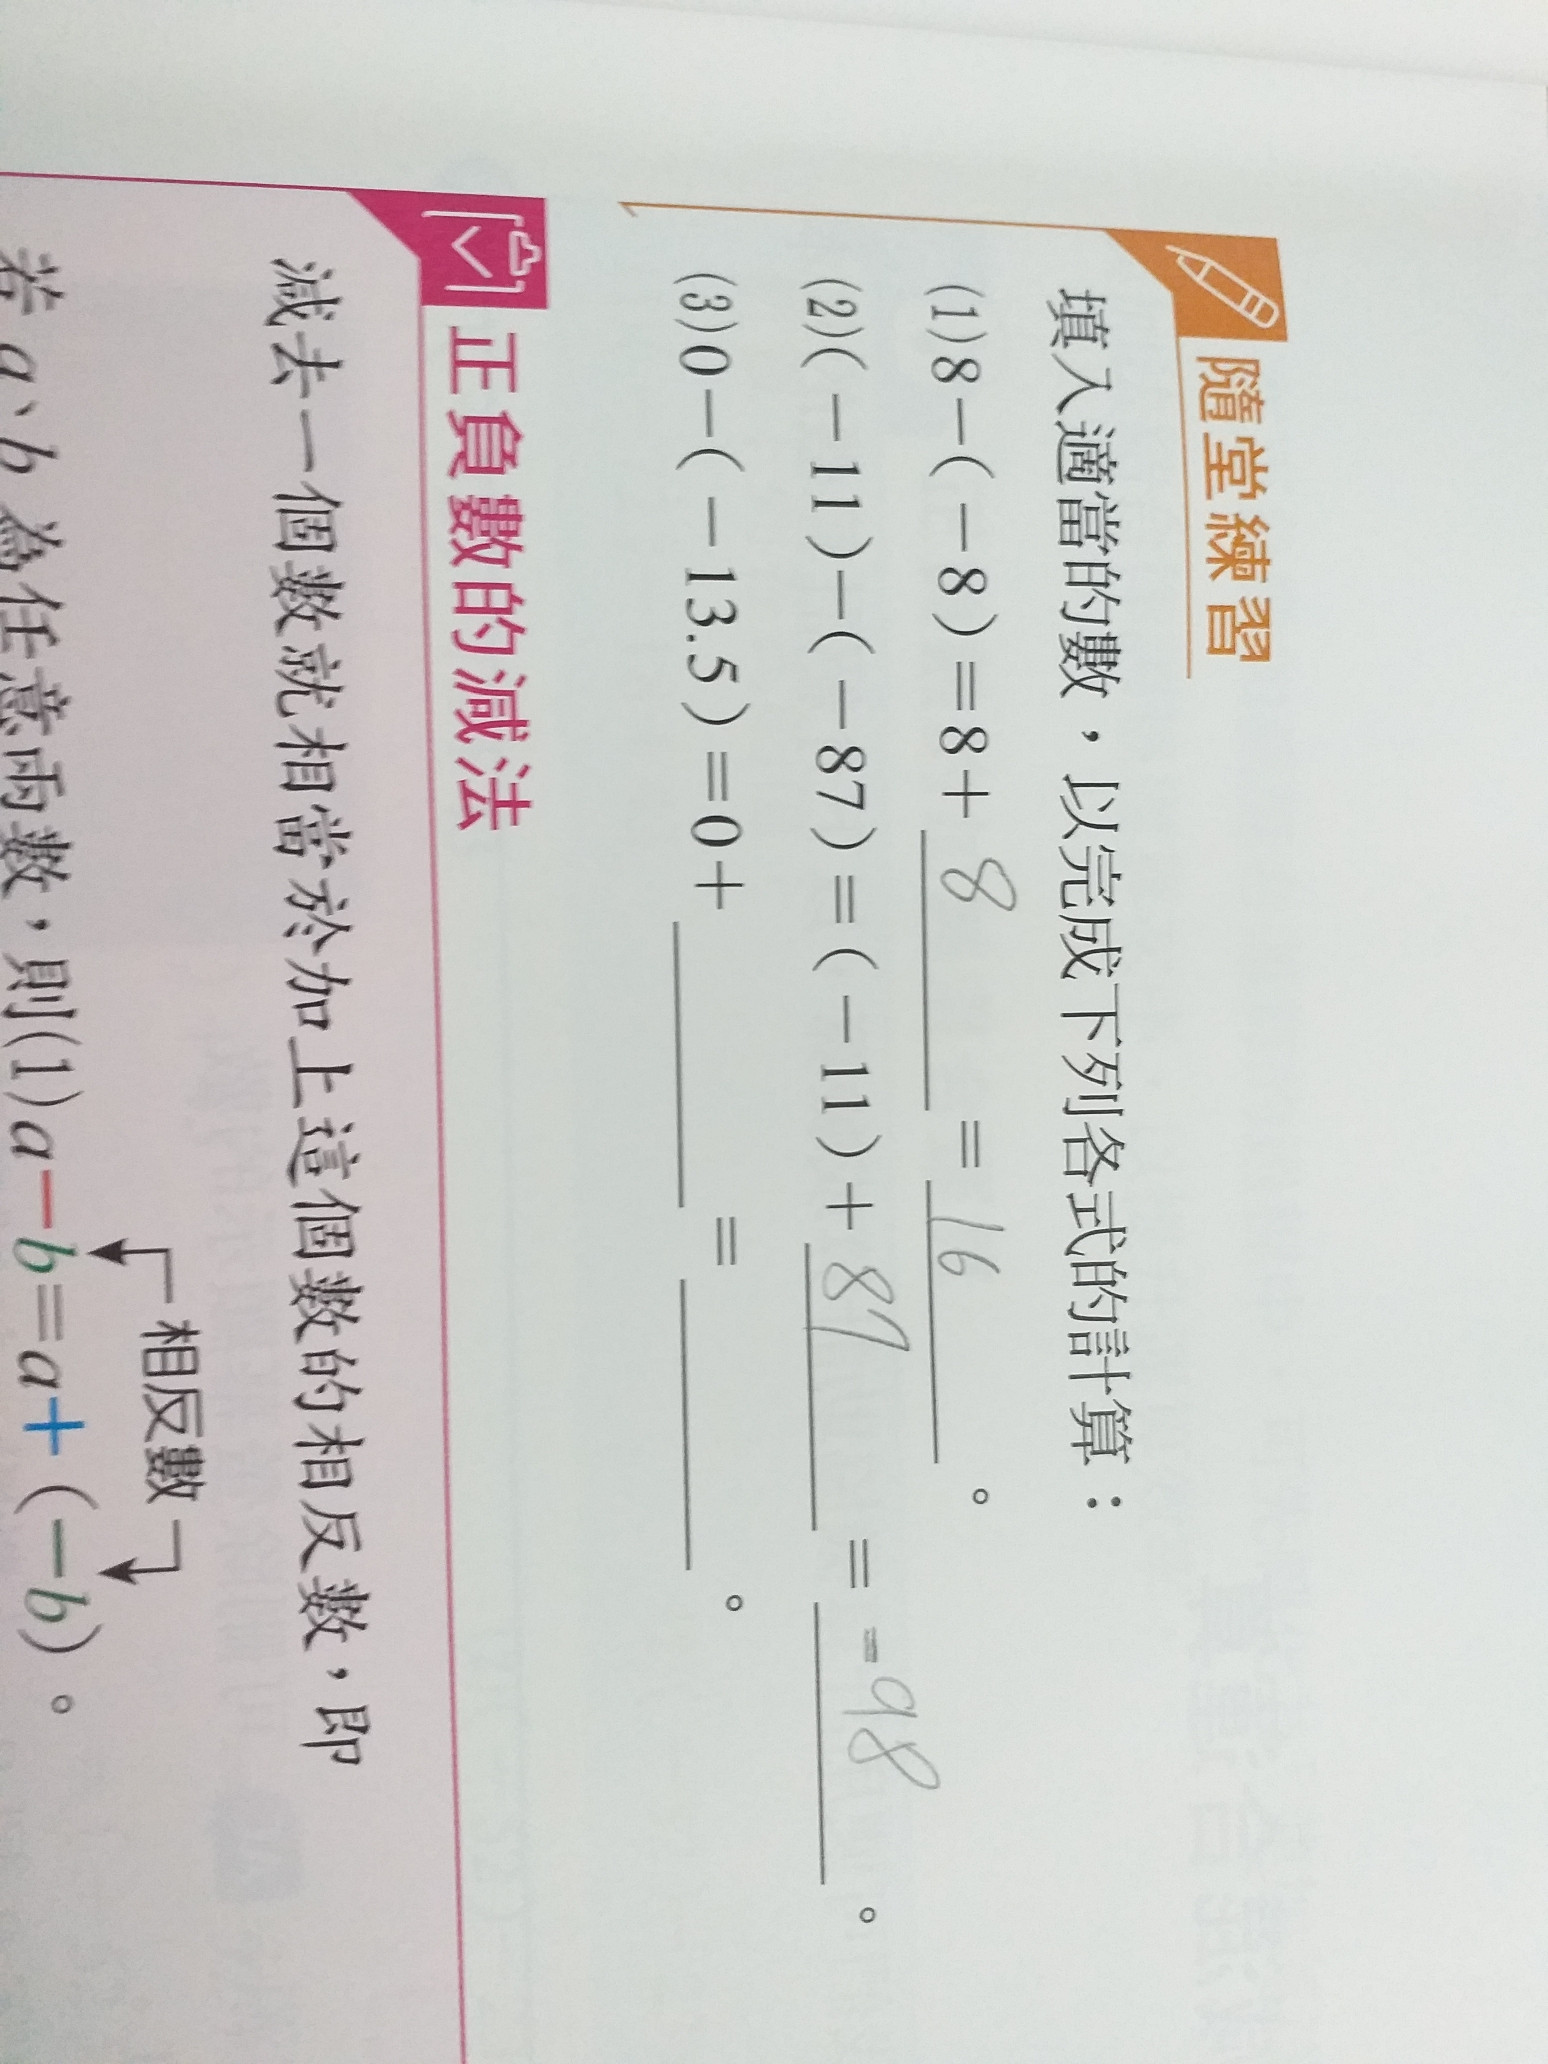 隨堂練習
填入適當的數，以完成下列各式的計算：
(1)8－(－8)＝8＋ 8 ＝ 16 。
(2)(－11)－(－87)＝(－11)＋ 87 ＝ -98 。
(3)0－(－13.5)＝0＋＿＿＿＝＿＿＿。
正負數的減法
減去一個數就相當於加上這個數的相反數，即
相反數
若 a、b 為任意兩數，則(1)a－b＝a＋(－b)。